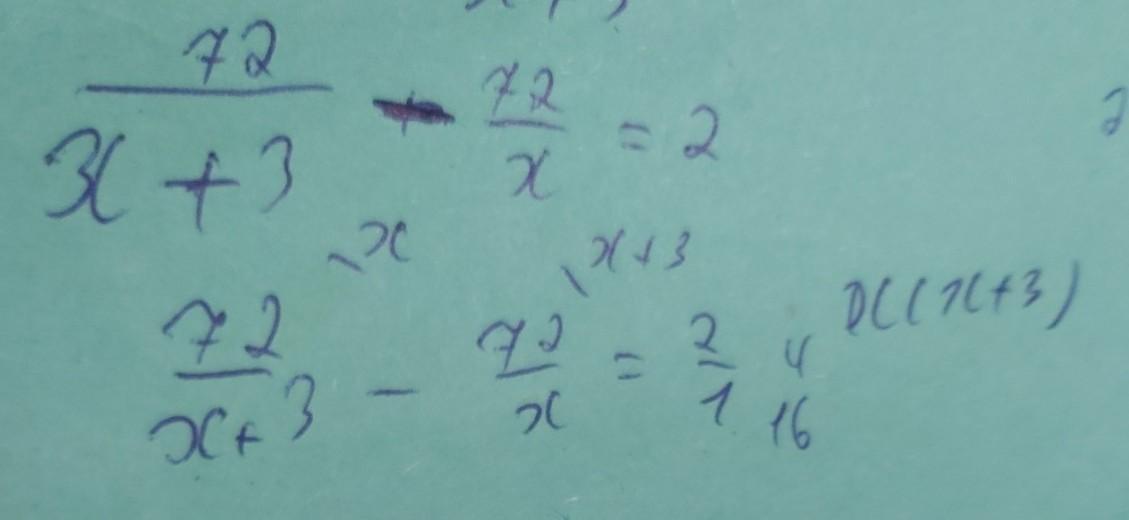 72/(x+3) - 72/x = 2
\x \x+3
72/(x+3) - 72/x = 2/1 x(x+3)
4
16
2